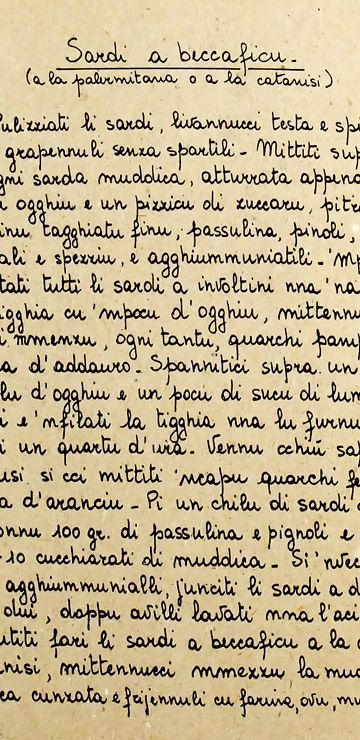 Sardi a beccaficu -
(a la palermitana o a la catanisi)
ulizziati li sardi, livannucci testa e spi
grapennuli senza spartili - Mittiti sup
gni sarda muddica, atturrata appena
i ogghiu e un pizzicu di zuccaru, pitr
inu tagghiatu finu, passulina, pinoli,
ali e spezziu, e agghiummuniatili - 'mp
tati tutti li sardi a involtini nna 'na
igghia cu 'mpocu d'ogghiu, mittennu
i mmenzu, ogni tantu, quarchi pamp
a d'addauro - Spannitici supra un
lu d'ogghiu e un pocu di sucu di lum
i e 'nfilati la tigghia nna lu furnu
i un quartu d'ura - Vennu cchiù sap
usi si cci mittiti 'ncapu quarchi fe
a d'aranciu - Pi un chilu di sardi c
onnu 100 gr. di passulina e pignoli e
-10 cucchiarati di muddica - Si 'nvec
agghiummunialli, junciti li sardi a d
dui, doppu avilli lavati nna l'aci
utiti fari li sardi a beccaficu a la c
anisi, mittennucci mmezzu la mud
ca cunzata e frijennuli cu farina, ovu, mu